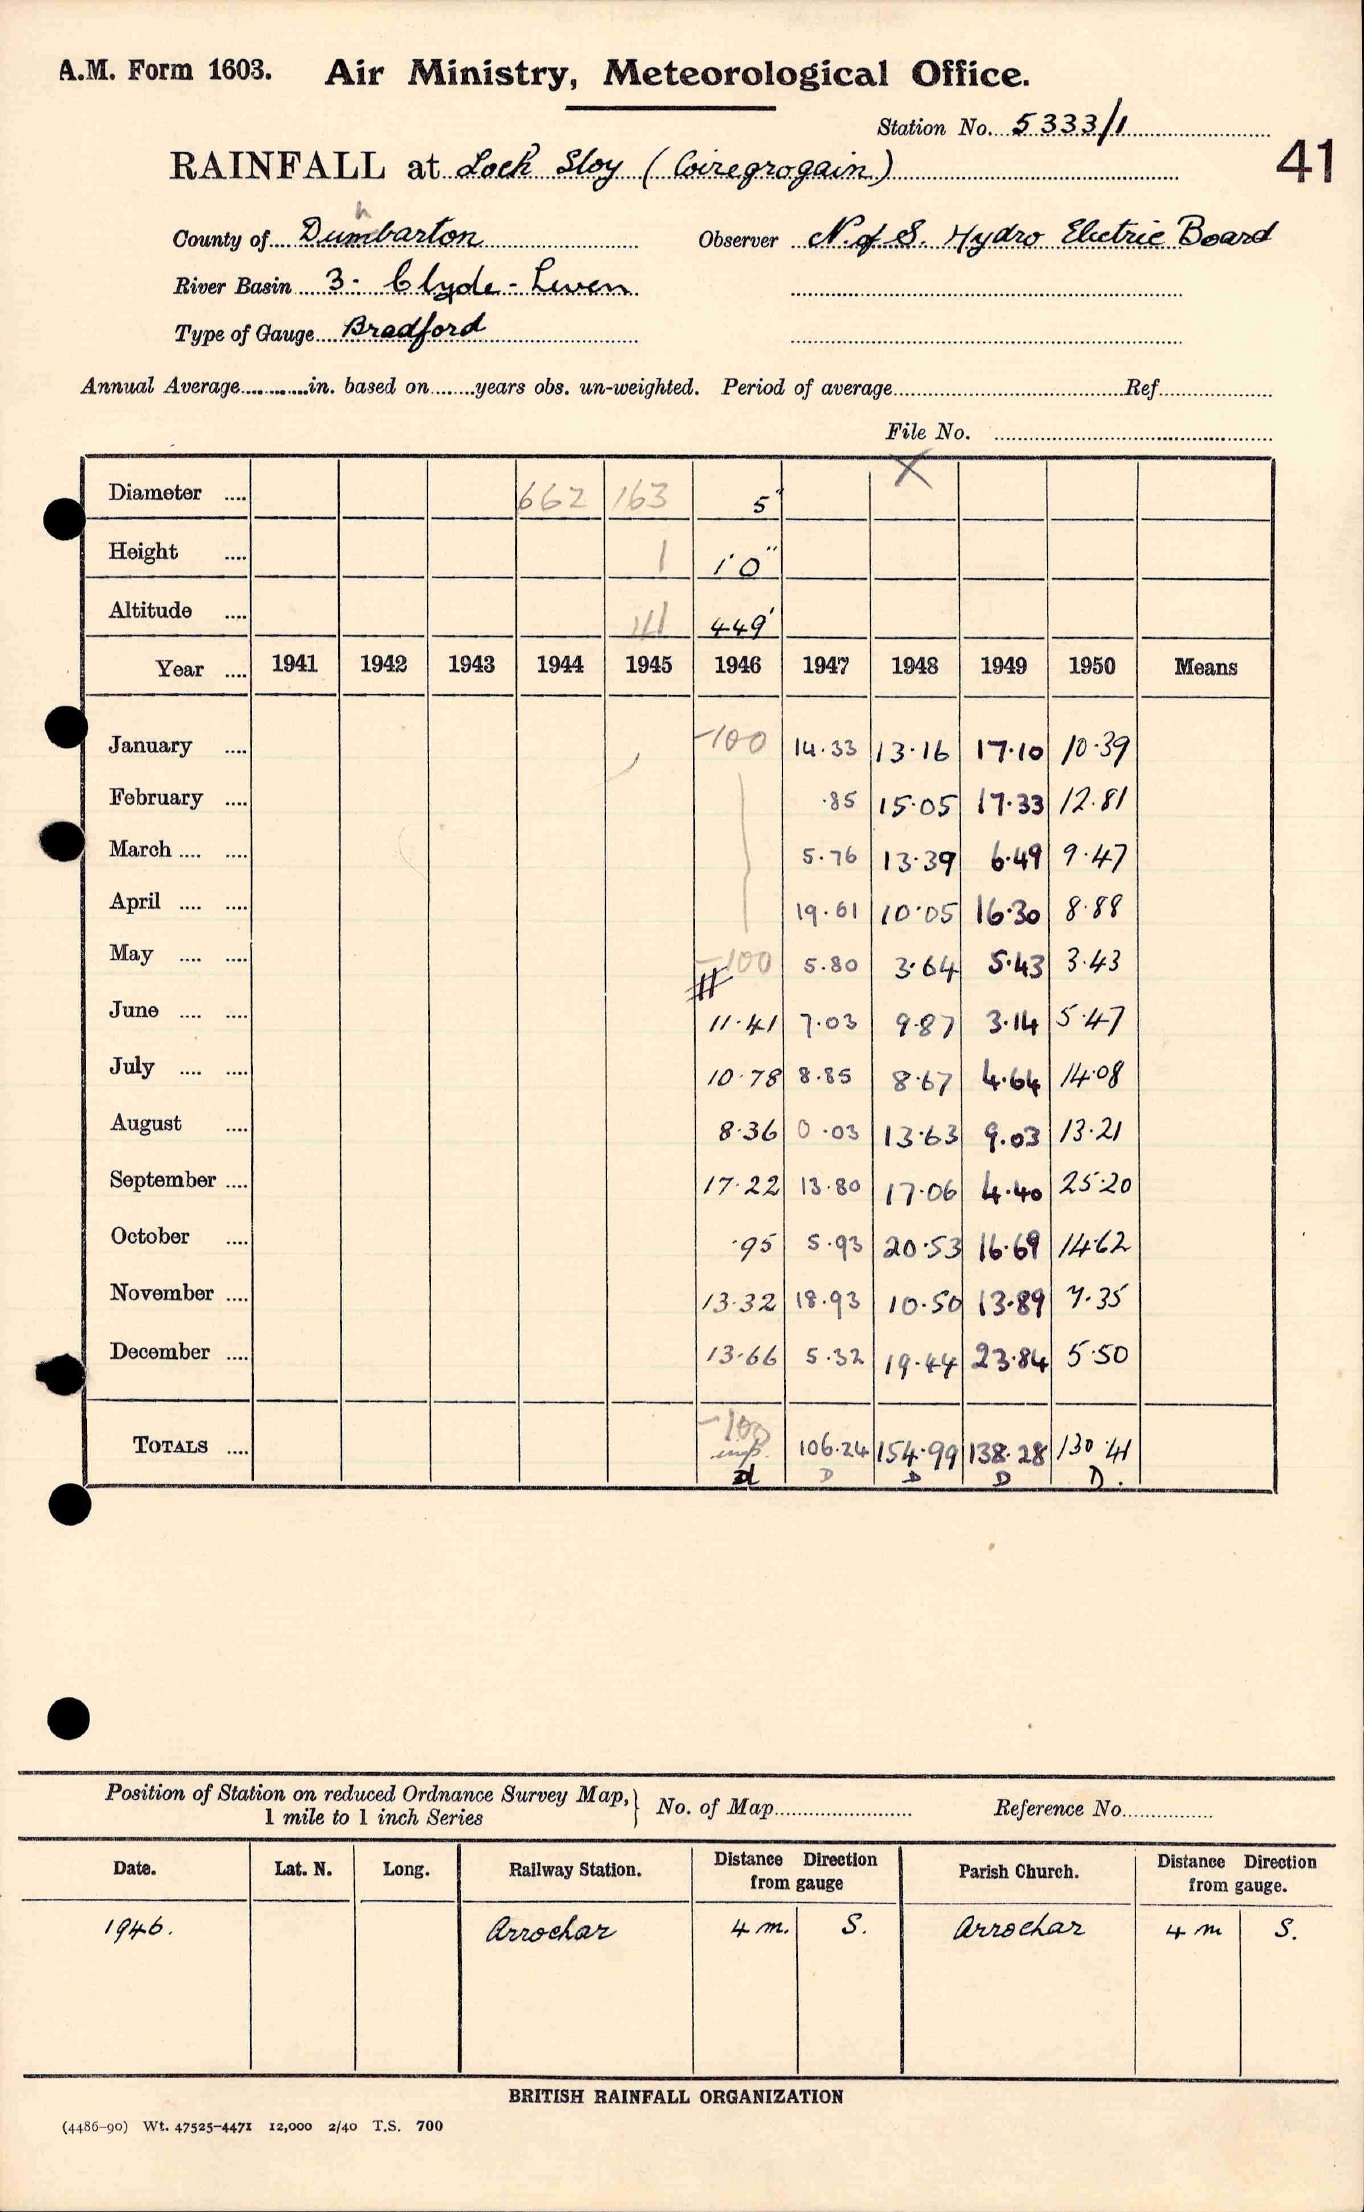 A.M. Form 1603. Air Ministry, Meteorological Office.
Station No. 5333/1
41
RAINFALL at Loch Sloy (Coiregrogain)
County of Dumbarton Observer N. of S. Hydro Electric Board
n
River Basin 3. Clyde - Leven
Type of Gauge Bradford
Annual Average in. based on years obs. un-weighted. Period of average Ref.
File No.
X
Diameter 662 163 5"
Height 1 1' 0"
Altitude 141 449'
Year 1941 1942 1943 1944 1945 1946 1947 1948 1949 1950 Means
January -100 14.33 13.16 17.10 10.39
February .85 15.05 17.33 12.81
March 5.76 13.39 6.49 9.47
April 19.61 10.05 16.30 8.88
May -100 5.80 3.64 5.43 3.43
June 11.41 7.03 9.87 3.14 5.47
July 10.78 8.85 8.67 4.64 14.08
August 8.36 0.03 13.63 9.03 13.21
September 17.22 13.80 17.06 4.40 25.20
October .95 5.93 20.53 16.69 14.62
November 13.32 18.93 10.50 13.89 7.35
December 13.66 5.32 19.44 23.84 5.50
-100
TOTALS imp. 106.24 154.99 138.28 130.41
d D D D D.
Position of Station on reduced Ordnance Survey Map, } No. of Map Reference No.
1 mile to 1 inch Series
Date. Lat. N. Long. Railway Station. Distance Direction from gauge Parish Church. Distance Direction from gauge.
1946. Arrochar 4 m. S. Arrochar 4 m S.
BRITISH RAINFALL ORGANIZATION
(4486-90) Wt. 47525-4471 12,000 2/40 T.S. 700